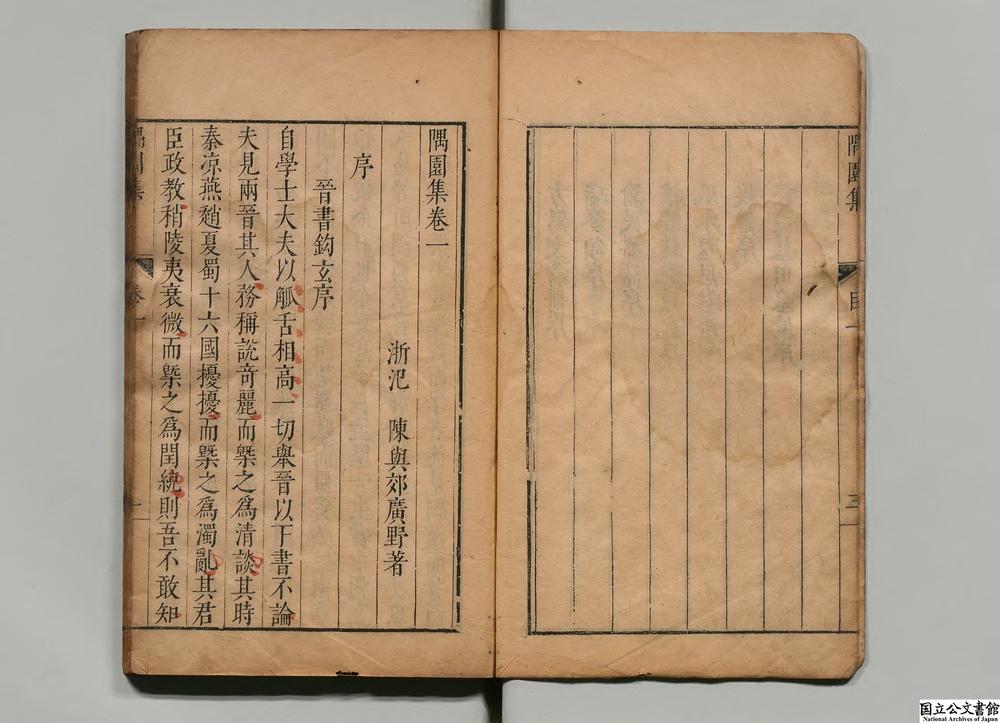 隅園集
目一
三
隅園集卷一
浙汜 陳與郊廣野著
序
晉書鈎玄序
自學士大夫以觚舌相高一切舉晉以下書不論
夫見兩晉其人務稱說奇麗而槩之爲清談其時
秦凉燕趙夏蜀十六國擾擾而槩之爲濁亂其君
臣政教稍陵夷衰微而槩之爲閏統則吾不敢知
隅園集
卷一
一
国立公文書館
National Archives of Japan